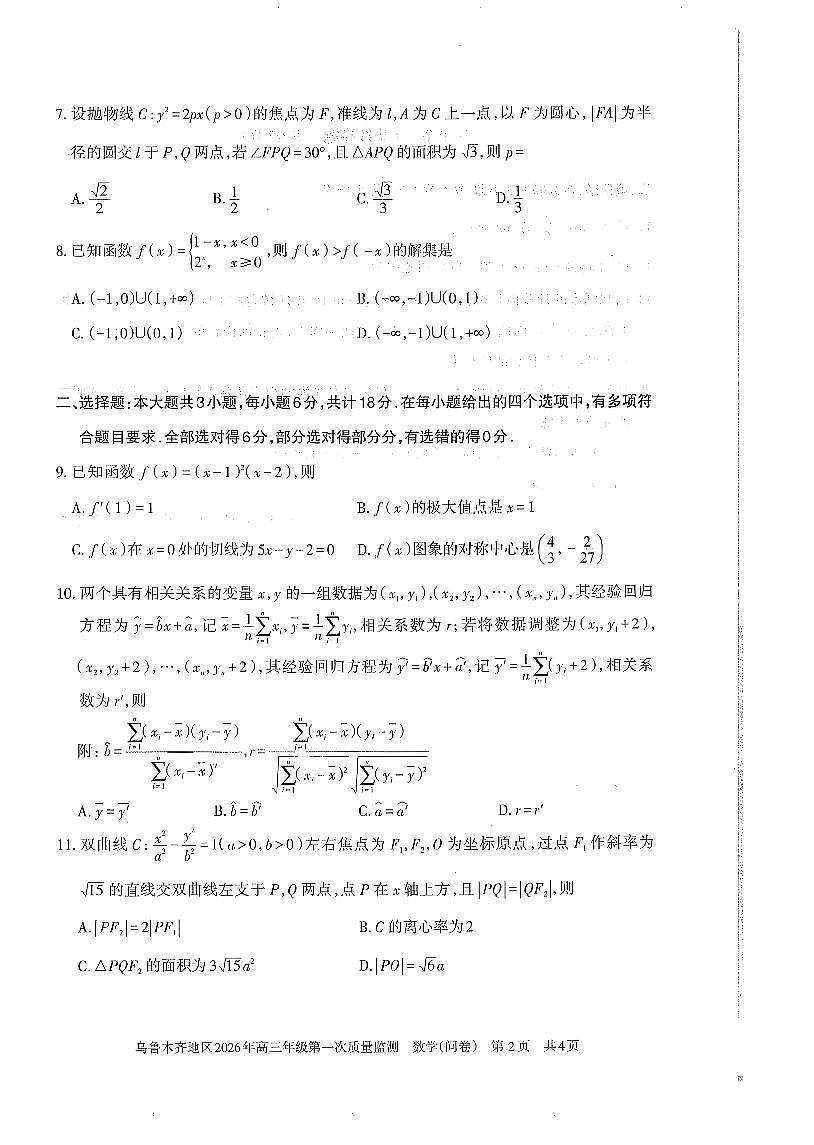 7. 设抛物线 C:y²=2px(p>0)的焦点为 F,准线为 l,A 为 C 上一点,以 F 为圆心,|FA|为半
径的圆交 l 于 P,Q 两点,若∠FPQ=30°,且△APQ 的面积为 √3,则 p=
A. √2/2 B. 1/2 C. √3/3 D. 1/3
8. 已知函数 f(x)={1-x, x<0 2ˣ, x≥0 ,则 f(x)>f(-x)的解集是
A. (-1,0)∪(1,+∞) B. (-∞,-1)∪(0,1)
C. (-1,0)∪(0,1) D. (-∞,-1)∪(1,+∞)
二、选择题:本大题共3小题,每小题6分,共计18分.在每小题给出的四个选项中,有多项符
合题目要求.全部选对得6分,部分选对得部分分,有选错的得0分.
9. 已知函数 f(x)=(x-1)²(x-2),则
A. f′(1)=1 B. f(x)的极大值点是 x=1
C. f(x)在 x=0 处的切线为 5x-y-2=0 D. f(x)图象的对称中心是(4/3, -2/27)
10. 两个具有相关关系的变量 x,y 的一组数据为(x₁,y₁),(x₂,y₂),⋯,(xₙ,yₙ),其经验回归
方程为 ŷ=b̂x+â,记 x̄=1/n ∑ᵢ₌₁ⁿ xᵢ,ȳ=1/n ∑ᵢ₌₁ⁿ yᵢ,相关系数为 r;若将数据调整为(x₁,y₁+2),
(x₂,y₂+2),⋯,(xₙ,yₙ+2),其经验回归方程为 ŷ′=b̂′x+â′,记 ȳ′=1/n ∑ᵢ₌₁ⁿ(yᵢ+2),相关系
数为 r′,则
附: b̂=∑ᵢ₌₁ⁿ(xᵢ-x̄)(yᵢ-ȳ)/∑ᵢ₌₁ⁿ(xᵢ-x̄)²,r=∑ᵢ₌₁ⁿ(xᵢ-x̄)(yᵢ-ȳ)/√∑ᵢ₌₁ⁿ(xᵢ-x̄)²√∑ᵢ₌₁ⁿ(yᵢ-ȳ)²
A. ȳ=ȳ′ B. b̂=b̂′ C. â=â′ D. r=r′
11. 双曲线 C: x²/a²-y²/b²=1(a>0,b>0)左右焦点为 F₁,F₂,O 为坐标原点,过点 F₁ 作斜率为
√15 的直线交双曲线左支于 P,Q 两点,点 P 在 x 轴上方,且|PQ|=|QF₂|,则
A. |PF₂|=2|PF₁| B. C 的离心率为2
C. △PQF₂ 的面积为 3√15a² D. |PO|=√6a
乌鲁木齐地区2026年高三年级第一次质量监测 数学(问卷) 第2页 共4页